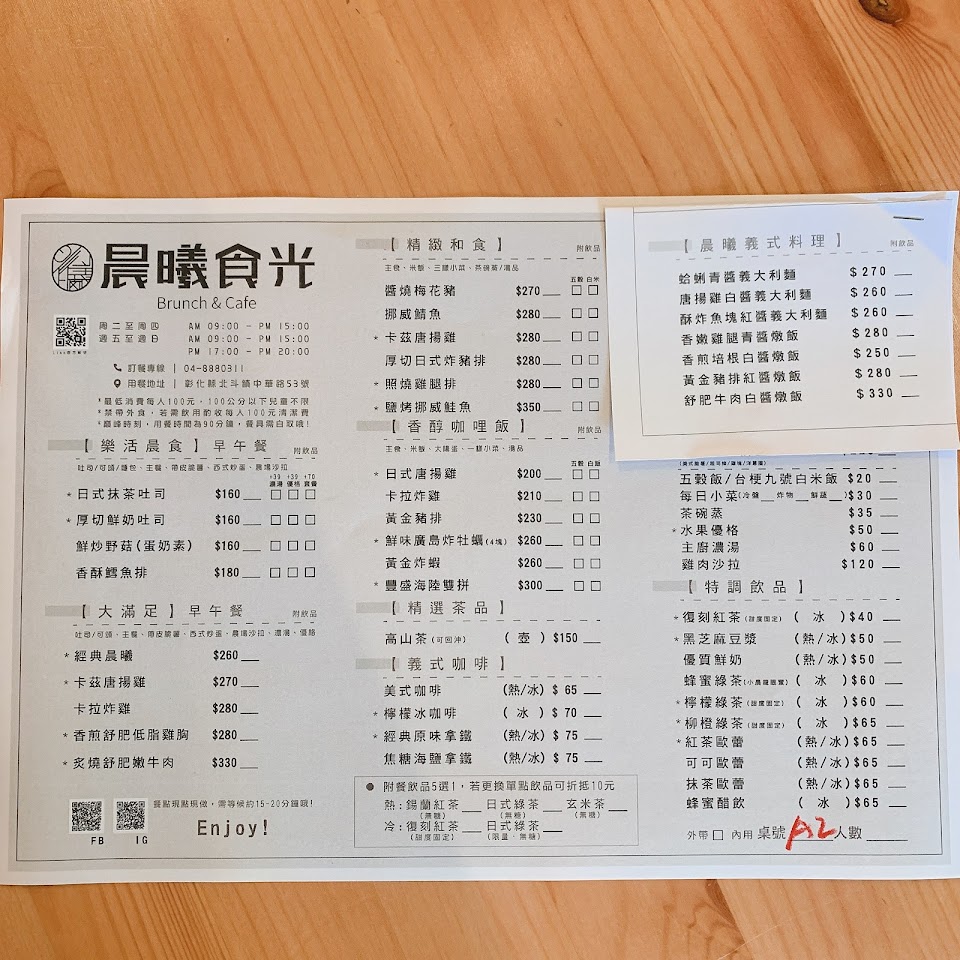 晨曦食光
Brunch & Cafe
周二至周四 AM 09:00 - PM 15:00
週五至週日 AM 09:00 - PM 15:00
PM 17:00 - PM 20:00
訂餐專線 | 04-8880311
用餐地址 | 彰化縣北斗鎮中華路53號
*最低消費每人100元，100公分以下兒童不限
*禁帶外食，若需飲用酌收每人100元清潔費
*巔峰時刻，用餐時間為90分鐘，餐具需自取哦!
【樂活晨食】早午餐 附飲品
吐司/可頌/麵包、主餐、帶皮脆薯、西式炒蛋、農場沙拉
+39 +39 +70
濃湯 優格 套餐
*日式抹茶吐司 $160
*厚切鮮奶吐司 $160
鮮炒野菇(蛋奶素) $160
香酥鱈魚排 $180
【大滿足】早午餐 附飲品
吐司/可頌、主餐、帶皮脆薯、西式炒蛋、農場沙拉、濃湯、優格
*經典晨曦 $260
*卡茲唐揚雞 $270
卡拉炸雞 $280
*香煎舒肥低脂雞胸 $280
*炙燒舒肥嫩牛肉 $330
餐點現點現做，需等候約15-20分鐘哦!
Enjoy!
FB IG
【精緻和食】 附飲品
主食、米飯、三樣小菜、茶碗蒸/湯品
五穀 白米
醬燒梅花豬 $270
挪威鯖魚 $280
*卡茲唐揚雞 $280
厚切日式炸豬排 $280
*照燒雞腿排 $280
*鹽烤挪威鮭魚 $350
【香醇咖哩飯】 附飲品
主食、米飯、太陽蛋、一樣小菜、湯品
五穀 白飯
*日式唐揚雞 $200
卡拉炸雞 $210
黃金豬排 $230
*鮮味廣島炸牡蠣(4塊) $260
黃金炸蝦 $260
*豐盛海陸雙拼 $300
【精選茶品】
高山茶(可回沖) (壺) $150
【義式咖啡】
美式咖啡 (熱/冰) $ 65
*檸檬冰咖啡 (冰) $ 70
*經典原味拿鐵 (熱/冰) $ 75
焦糖海鹽拿鐵 (熱/冰) $ 75
● 附餐飲品5選1，若更換單點飲品可折抵10元
熱:錫蘭紅茶 日式綠茶 玄米茶
(無糖) (無糖) (無糖)
冷:復刻紅茶 日式綠茶
(甜度固定) (限量、無糖)
【晨曦義式料理】 附飲品
蛤蜊青醬義大利麵 $270
唐揚雞白醬義大利麵 $260
酥炸魚塊紅醬義大利麵 $260
香嫩雞腿青醬燉飯 $280
香煎培根白醬燉飯 $250
黃金豬排紅醬燉飯 $280
舒肥牛肉白醬燉飯 $330
五穀飯/台梗九號白米飯 $20
每日小菜(冷盤 炸物 鮮蔬) $30
茶碗蒸 $35
*水果優格 $50
主廚濃湯 $60
雞肉沙拉 $120
【特調飲品】
*復刻紅茶(甜度固定) (冰) $40
*黑芝麻豆漿 (熱/冰) $50
優質鮮奶 (熱/冰) $50
蜂蜜綠茶 (冰) $60
*檸檬綠茶(甜度固定) (冰) $60
*柳橙綠茶(甜度固定) (冰) $65
*紅茶歐蕾 (熱/冰) $65
可可歐蕾 (熱/冰) $65
抹茶歐蕾 (熱/冰) $65
蜂蜜醋飲 (冰) $65
外帶 內用 桌號 A2 人數